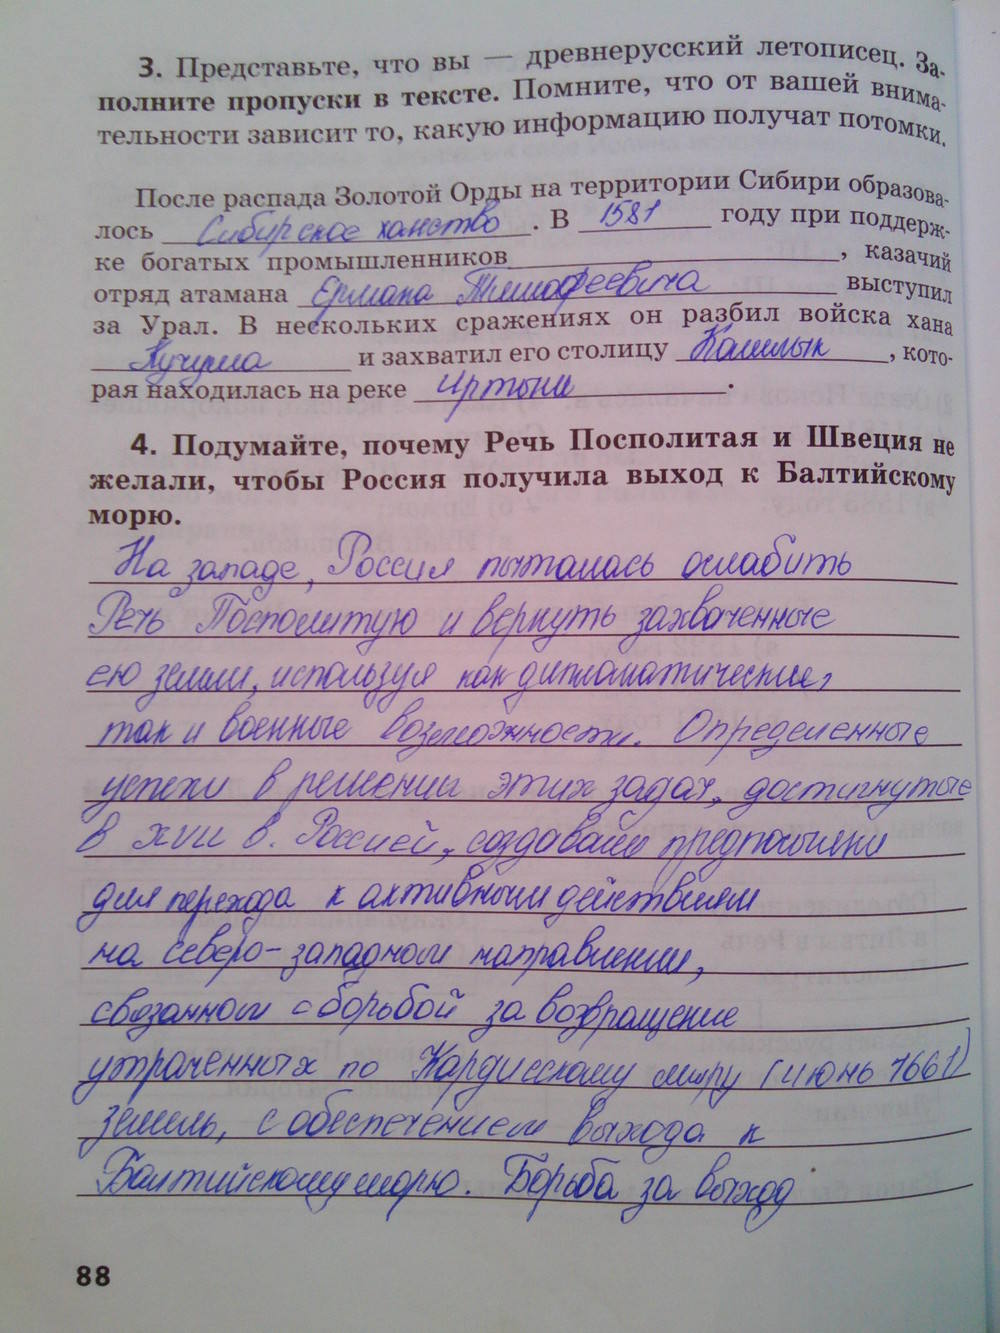 3. Представьте, что вы — древнерусский летописец. За-
полните пропуски в тексте. Помните, что от вашей внима-
тельности зависит то, какую информацию получат потомки.
После распада Золотой Орды на территории Сибири образова-
лось Сибирское ханство. В 1581 году при поддерж-
ке богатых промышленников, казачий
отряд атамана Ермака Тимофеевича выступил
за Урал. В нескольких сражениях он разбил войска хана
Кучума и захватил его столицу Кашлык, кото-
рая находилась на реке Иртыш.
4. Подумайте, почему Речь Посполитая и Швеция не
желали, чтобы Россия получила выход к Балтийскому
морю.
На западе, Россия пыталась ослабить
Речь Посполитую и вернуть захваченные
ею земли, используя как дипломатические,
так и военные возможности. Определенные
успехи в решении этих задач, достигнутые
в XVII в. Россией, создавали предпосылки
для перехода к активным действиям
на северо-западном направлении,
связанном с борьбой за возвращение
утраченных по Кардисскому миру (июнь 1661)
земель, с обеспечением выхода к
Балтийскому морю. Борьба за выход
88